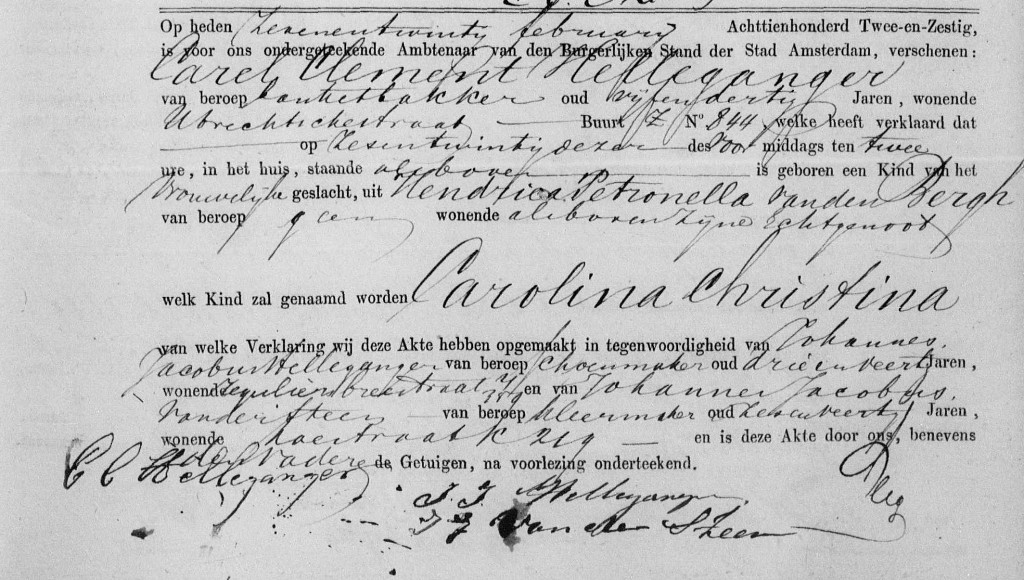 Op heden Zesenentwintig februarij Achttienhonderd Twee-en-Zestig,
is voor ons ondergeteekende Ambtenaar van den Burgerlijken Stand der Stad Amsterdam, verschenen:
Carel Clement Helleganger
van beroep banketbakker oud vijfendertig Jaren, wonende
Utrechtschestraat Buurt Z No 844 welke heeft verklaard dat
op Zesentwintig dezer des voor middags ten twee
ure, in het huis, staande alsboven is geboren een Kind van het
Vrouwelijk geslacht, uit Hendrica Petronella van den Bergh
van beroep geen wonende alsboven zijne Echtgenoot
welk Kind zal genaamd worden Carolina Christina
van welke Verklaring wij deze Akte hebben opgemaakt in tegenwoordigheid van Johannes
Jacobus Helleganger van beroep schoenmaker oud drieenveertig Jaren,
wonende en van Johannes Jacobus
van der Steen van beroep kleermaker oud Jaren,
wonende K 219 en is deze Akte door ons, benevens
den Vader en de Getuigen, na voorlezing onderteekend.
C C Helleganger
J. J. Helleganger
J J van der Steen